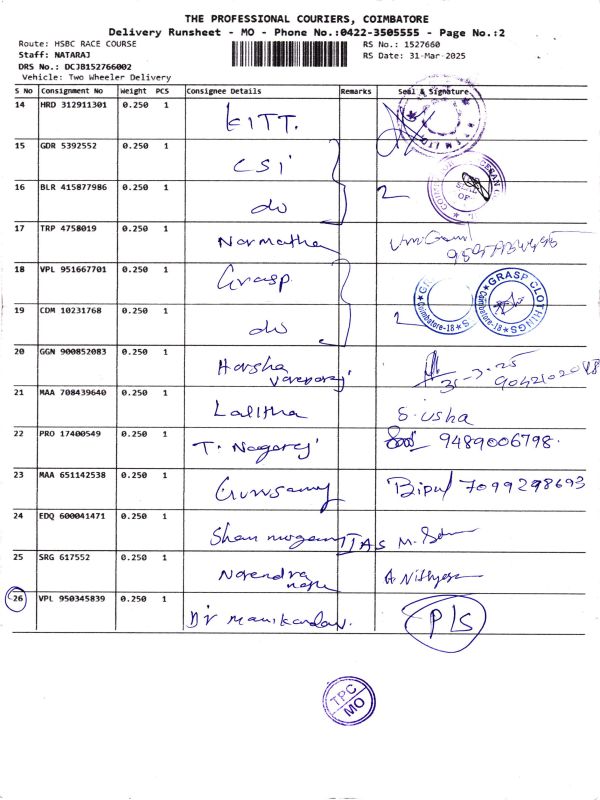 THE PROFESSIONAL COURIERS, COIMBATORE
Delivery Runsheet - MO - Phone No.:0422-3505555 - Page No.:2
Route: HSBC RACE COURSE
RS No.: 1527660
Staff: NATARAJ
RS Date: 31-Mar-2025
DRS No.: DCJB152766002
Vehicle: Two Wheeler Delivery
S No Consignment No Weight PCS Consignee Details Remarks Seal & Signature
14 HRD 312911301 0.250 1 KITT.
15 GDR 5392552 0.250 1 CSI
16 BLR 415877986 0.250 1 do 2
17 TRP 4758019 0.250 1 Narmatha
18 VPL 951667701 0.250 1 Grasp
19 CDM 10231768 0.250 1 do 2
GRASP CLOTHINGS
Coimbatore-18
20 GGN 900852083 0.250 1 Harsha 31-3-25
9042102048
21 MAA 708439640 0.250 1 Lalitha S. usha
22 PRO 17400549 0.250 1 T. Nagaraj 9489006798.
23 MAA 651142538 0.250 1 Gurusamy Bipul 7099298693
24 EDQ 600041471 0.250 1 IAS M.
25 SRG 617552 0.250 1 Narendra
26 VPL 950345839 0.250 1 Dr manikandan. PLS
TPC
MO